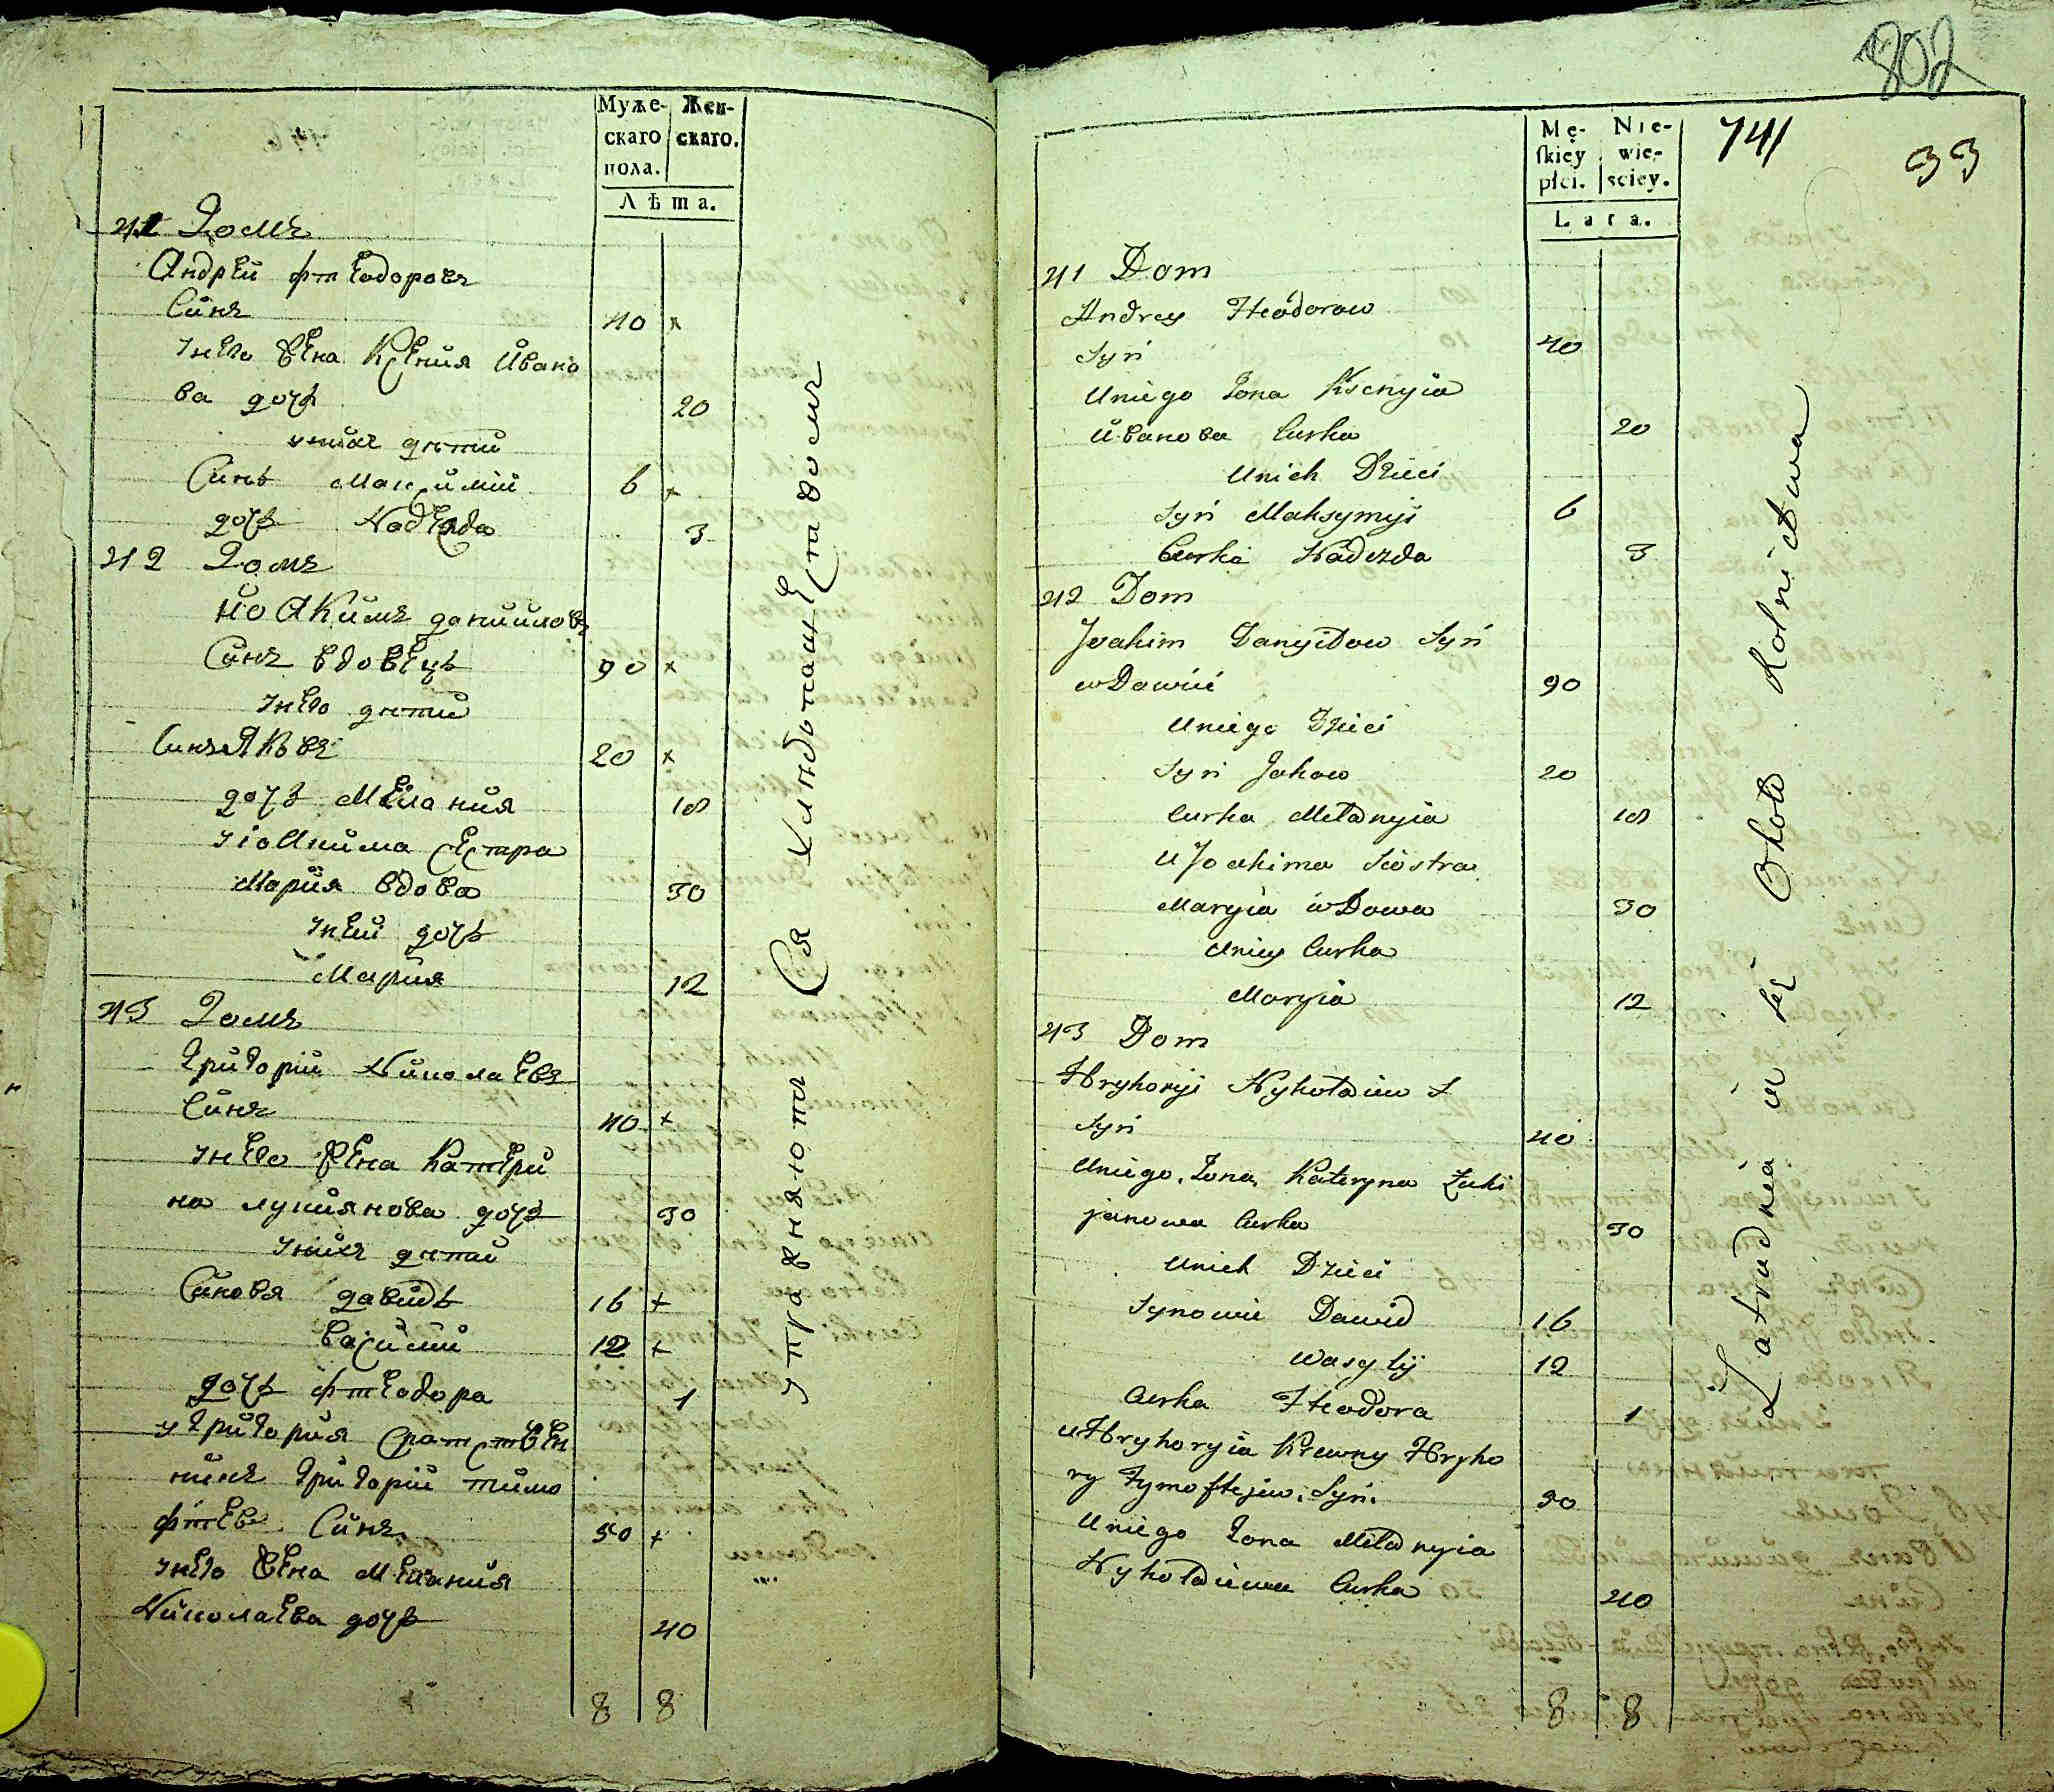 Муже-
скаго
пола.
Жен-
скаго.
Лѣта.
41 Домъ
Андрей Фтеодоровъ
Синъ 40 x
Унего Жена Ксенія Ивано
ва дочь 20
Унихъ дѣти
Синъ Максимій 6 x
дочь Надежда 3
42 Домъ
Иоакимъ Даниилов
Синъ вдовецъ 90 x
Унего дѣти
Синъ Яковъ 20 x
дочь Мелания 18
У Іоакима Сестра
Мария вдова 30
Уней дочь
Мария 12
43 Домъ
Григорій Николаевъ
Синъ 40 x
Унего Жена Катери
на Лукиянова дочь 30
Унихъ дѣти
Синовя Давидъ 16 x
Василий 12 x
дочь Фтеодора 1
У Григория Сродствен
никъ Григорій Тимо
фтеев Синъ 50 x
Унего Жена Мелания
Николаева дочь 40
8 8
упражняются хлѣбопашеством
802
Mę-
skiey
płci.
Nie-
wie-
sciey.
Lata.
741
33
41 Dom
Andrey Fteodorow
Syn 40
Uniego Żona Ksenyia
Иванова Curka 20
Unich Dzieci
Syn Maksymyi 6
Curka Nadezda 3
42 Dom
Joakim Danyiłow Syn
wDowiec 90
Uniego Dzieci
Syn Jakow 20
Curka Mełanyia 18
U Joakima Siostra
Maryia wDowa 30
Uniey Curka
Maryia 12
43 Dom
Hryhoryi Nykołaiew S
Syn 40
Uniego Żona Kateryna Łuki
janowa Curka 30
Unich Dzieci
Synowie Dawid 16
Wasylij 12
Curka Fteodora 1
u Hryhoryia Krewny Hryho
ry Tymofteiew Syn 50
Uniego Żona Mełanyia
Nykołaiewa Curka 40
8 8
Zatrudnia się Około Rolnictwa